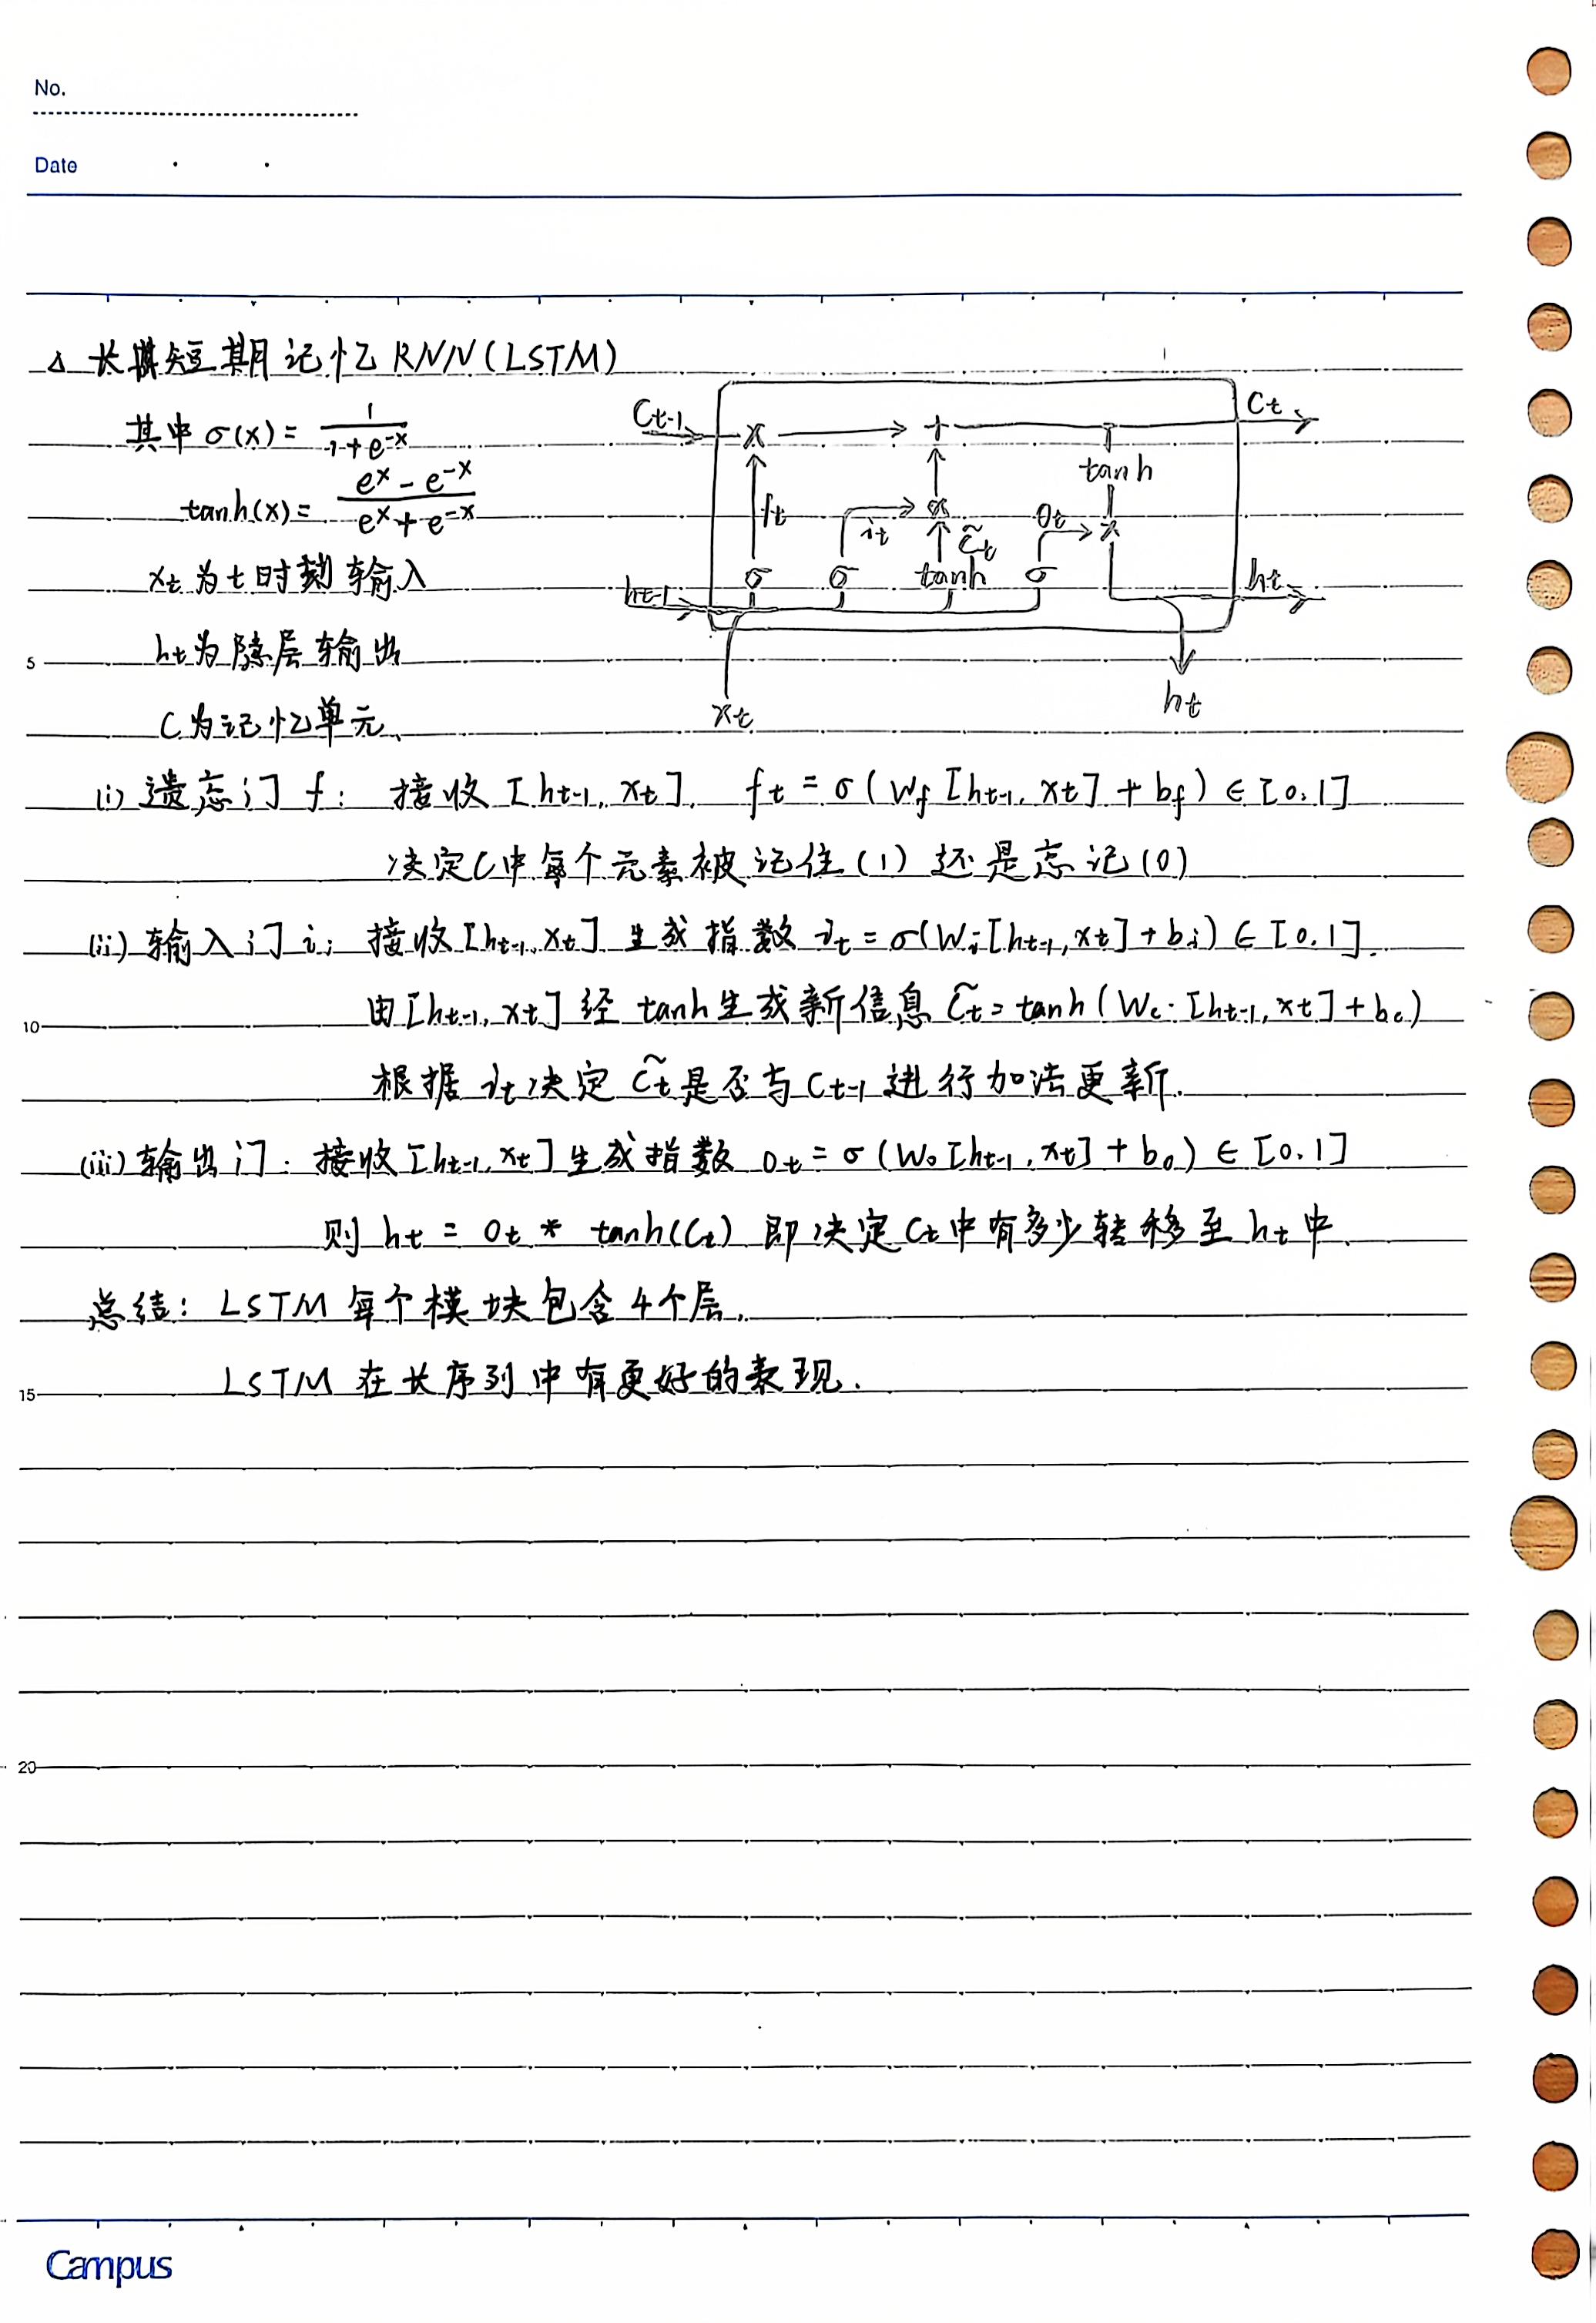 No.
Date
△ 长期短期记忆 RNN (LSTM)
其中 σ(x) = 1/(1+e^{-x})
tanh(x) = (e^x - e^{-x})/(e^x + e^{-x})
x_t 为 t 时刻输入
5 h_t 为隐层输出
C 为记忆单元、
C_{t-1} × + C_t
tanh
f_t i_t × C̃_t O_t ×
h_{t-1} σ σ tanh σ h_t
x_t h_t
(i) 遗忘门 f: 接收 [h_{t-1}, x_t]. f_t = σ(W_f [h_{t-1}, x_t] + b_f) ∈ [0,1]
决定C中每个元素被记住(1) 还是忘记(0)
(ii) 输入门 i: 接收 [h_{t-1}, x_t] 生成指数 i_t = σ(W_i·[h_{t-1}, x_t] + b_i) ∈ [0,1].
10 由[h_{t-1}, x_t] 经 tanh 生成新信息 C̃_t = tanh(W_c·[h_{t-1}, x_t] + b_c)
根据 i_t 决定 C̃_t 是否与 C_{t-1} 进行加法更新.
(iii) 输出门: 接收 [h_{t-1}, x_t] 生成指数 O_t = σ(W_o [h_{t-1}, x_t] + b_o) ∈ [0,1]
则 h_t = O_t * tanh(C_t) 即决定 C_t 中有多少转移至 h_t 中.
总结: LSTM 每个模块包含4个层.
15 LSTM 在长序列中有更好的表现.
20
Campus